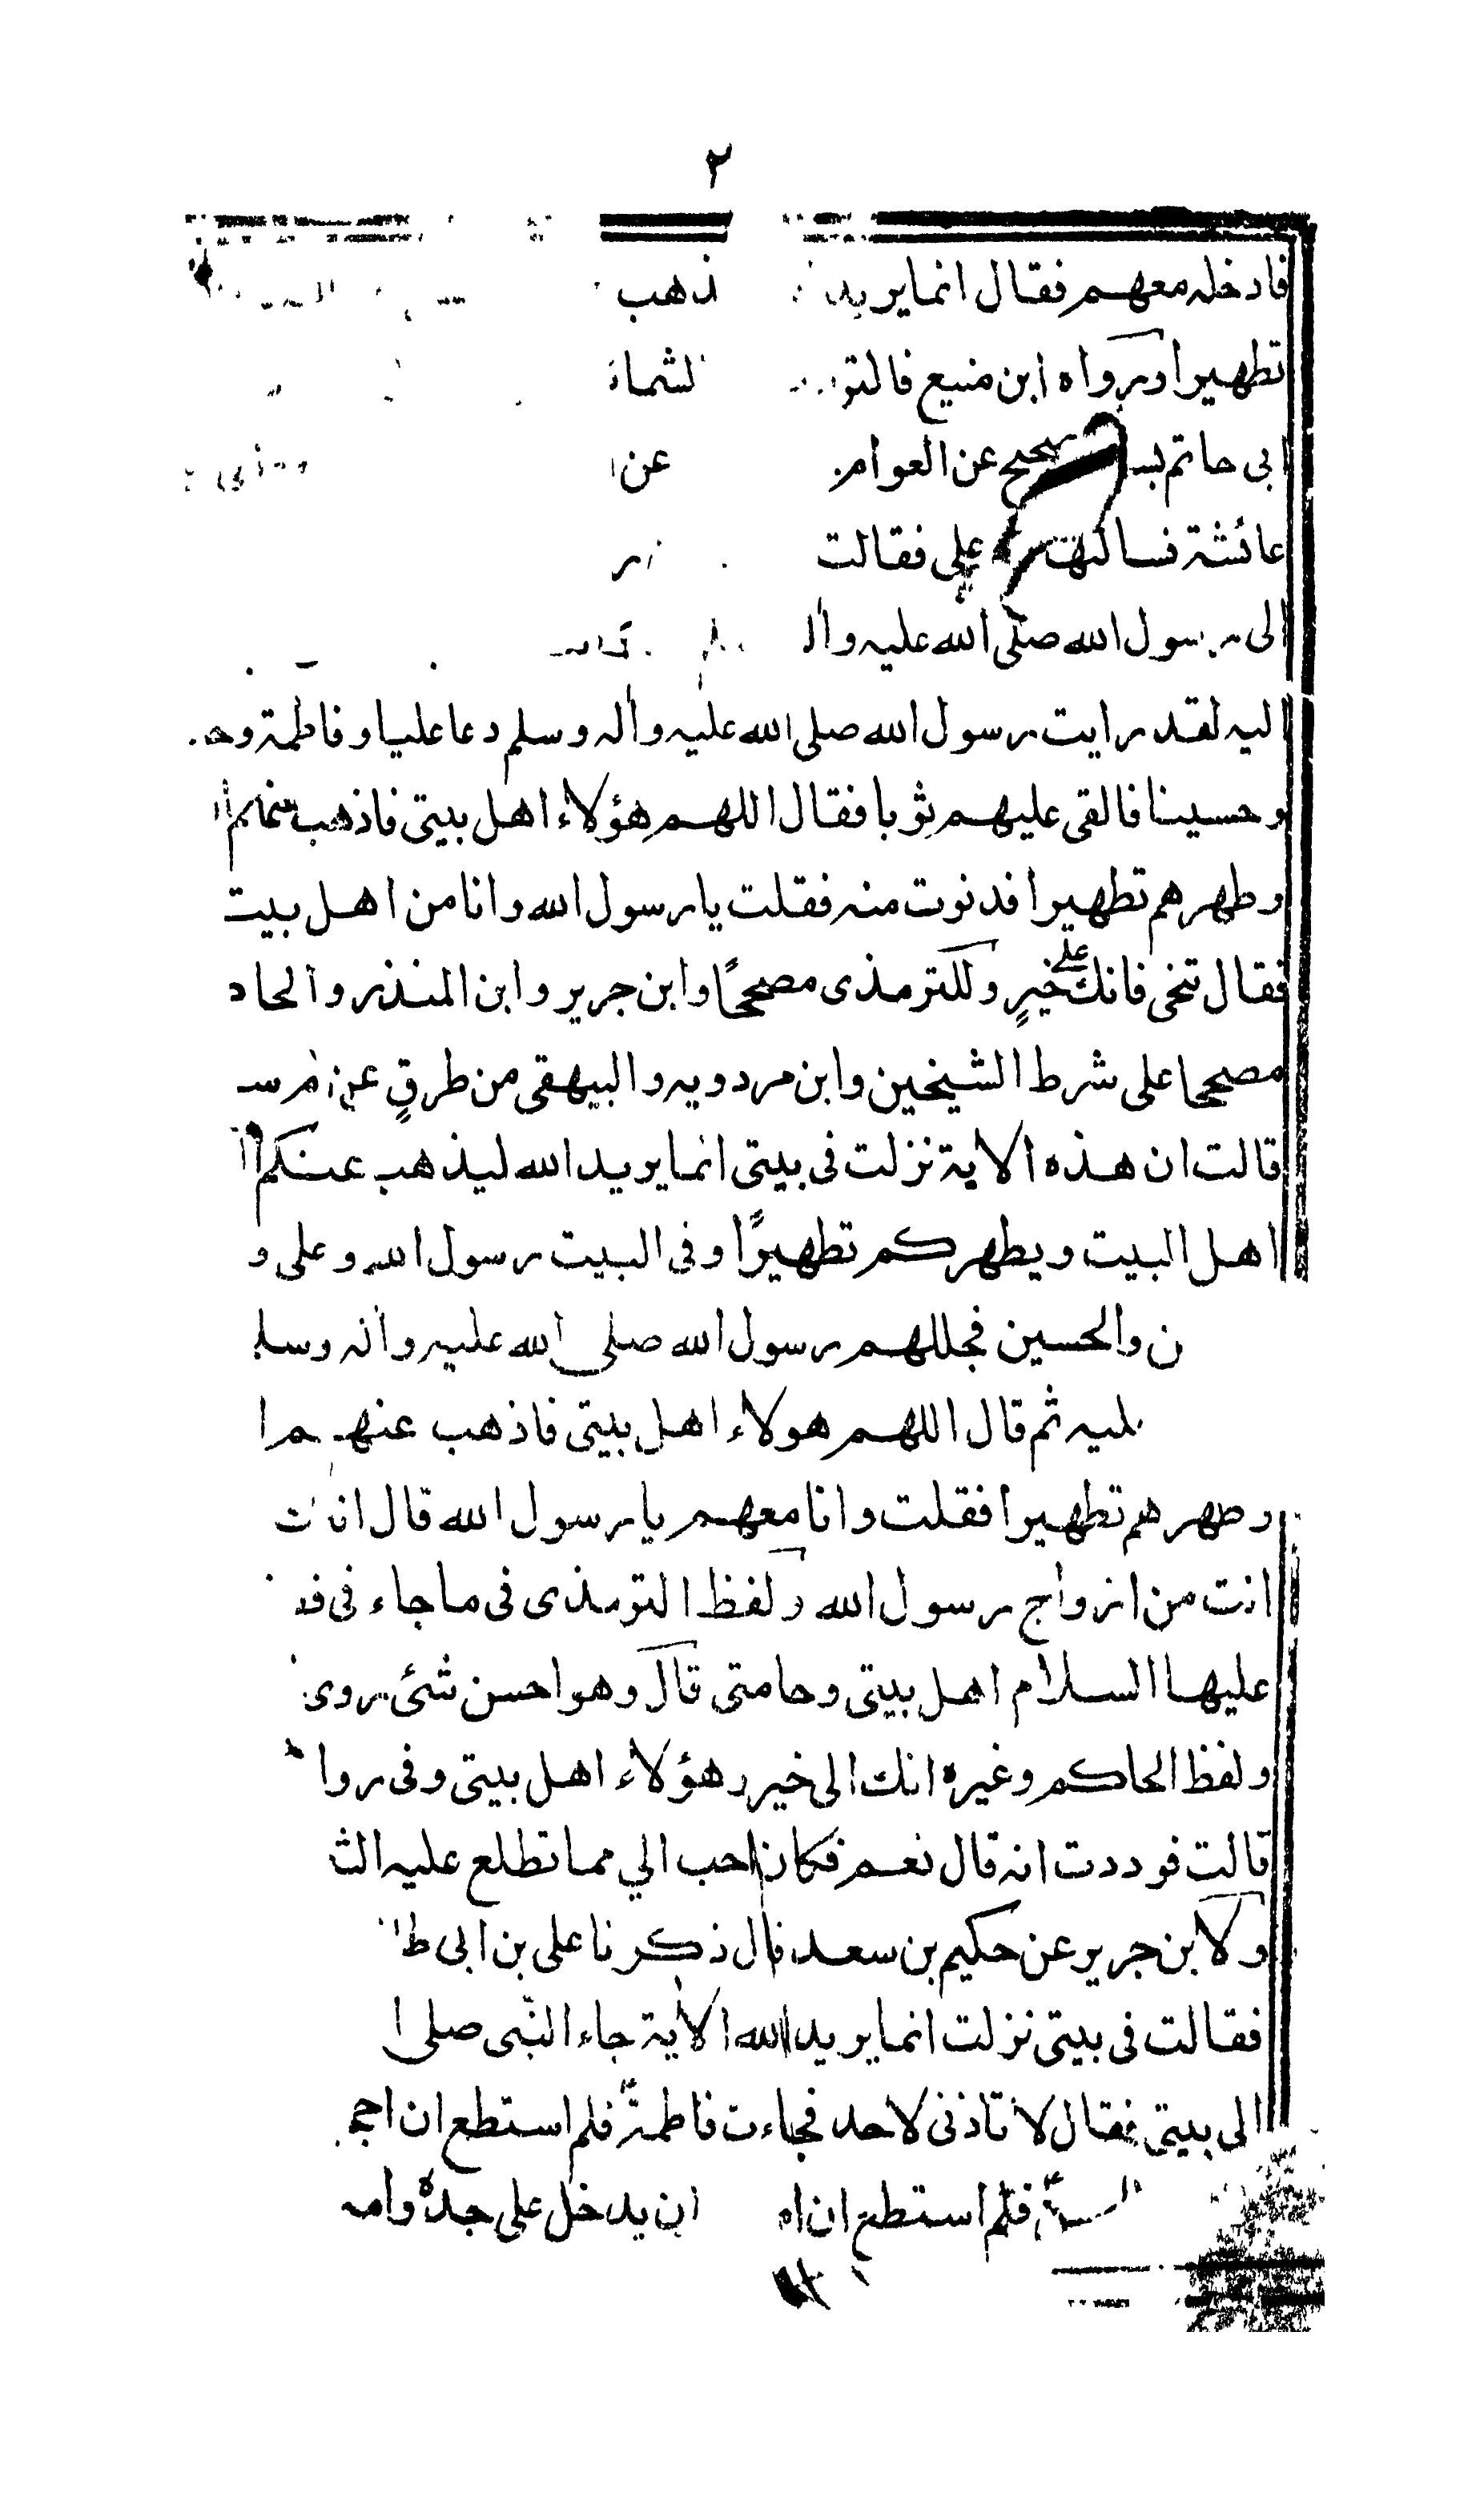 ٢
فادخله معهم فقال انما يريد ذهب
تطهيرا ورواه ابن منيع فالتر
ابى حاتم بسـ صحيح عن العوام عن
عائشة فسالتها عن على فقالت
الى رسول الله صلى الله عليه واله
اليه لقد رايت رسول الله صلى الله عليه واله وسلم دعا عليا وفاطمة و
وحسينا فالقى عليهم ثوبا فقال اللهم هؤلاء اهل بيتى فاذهب عنهم
وطهرهم تطهيرا فدنوت منه فقلت يا رسول الله وانا من اهل بيت
فقال تنحى فانك على خير وللترمذى مصححًا وابن جرير وابن المنذر والحا
مصححا على شرط الشيخين وابن مردويه والبيهقى من طرقٍ عن ام سـ
قالت ان هذه الاية نزلت فى بيتى انما يريد الله ليذهب عنكم
اهل البيت ويطهركم تطهيرًا وفى البيت رسول الله وعلى و
ن والحسين فجللهم رسول الله صلى الله عليه واله وسلـ
ليه ثم قال اللهم هولاء اهل بيتى فاذهب عنهم ا
وطهرهم تطهيرا فقلت وانا معهم يا رسول الله قال انت
انت من ازواج رسول الله ولفظ الترمذى فى ما جاء فى فـ
عليها السلام اهل بيتى وحامتى قال وهو احسن شئ روى
ولفظ الحاكم وغيره انك الى خير وهؤلاء اهل بيتى وفى روا
قالت فوددت انه قال نعم فكان احب الي مما تطلع عليه الشـ
ولابن جرير عن حكيم بن سعد قال ذكرنا على بن ابى طا
فقالت فى بيتى نزلت انما يريد الله الاية جاء النبى صلى ا
الى بيتى فقال لا تاذنى لاحد فجاءت فاطمة فلم استطع ان احجـ
فلم استطع ان ا ان يدخل على جده وامه